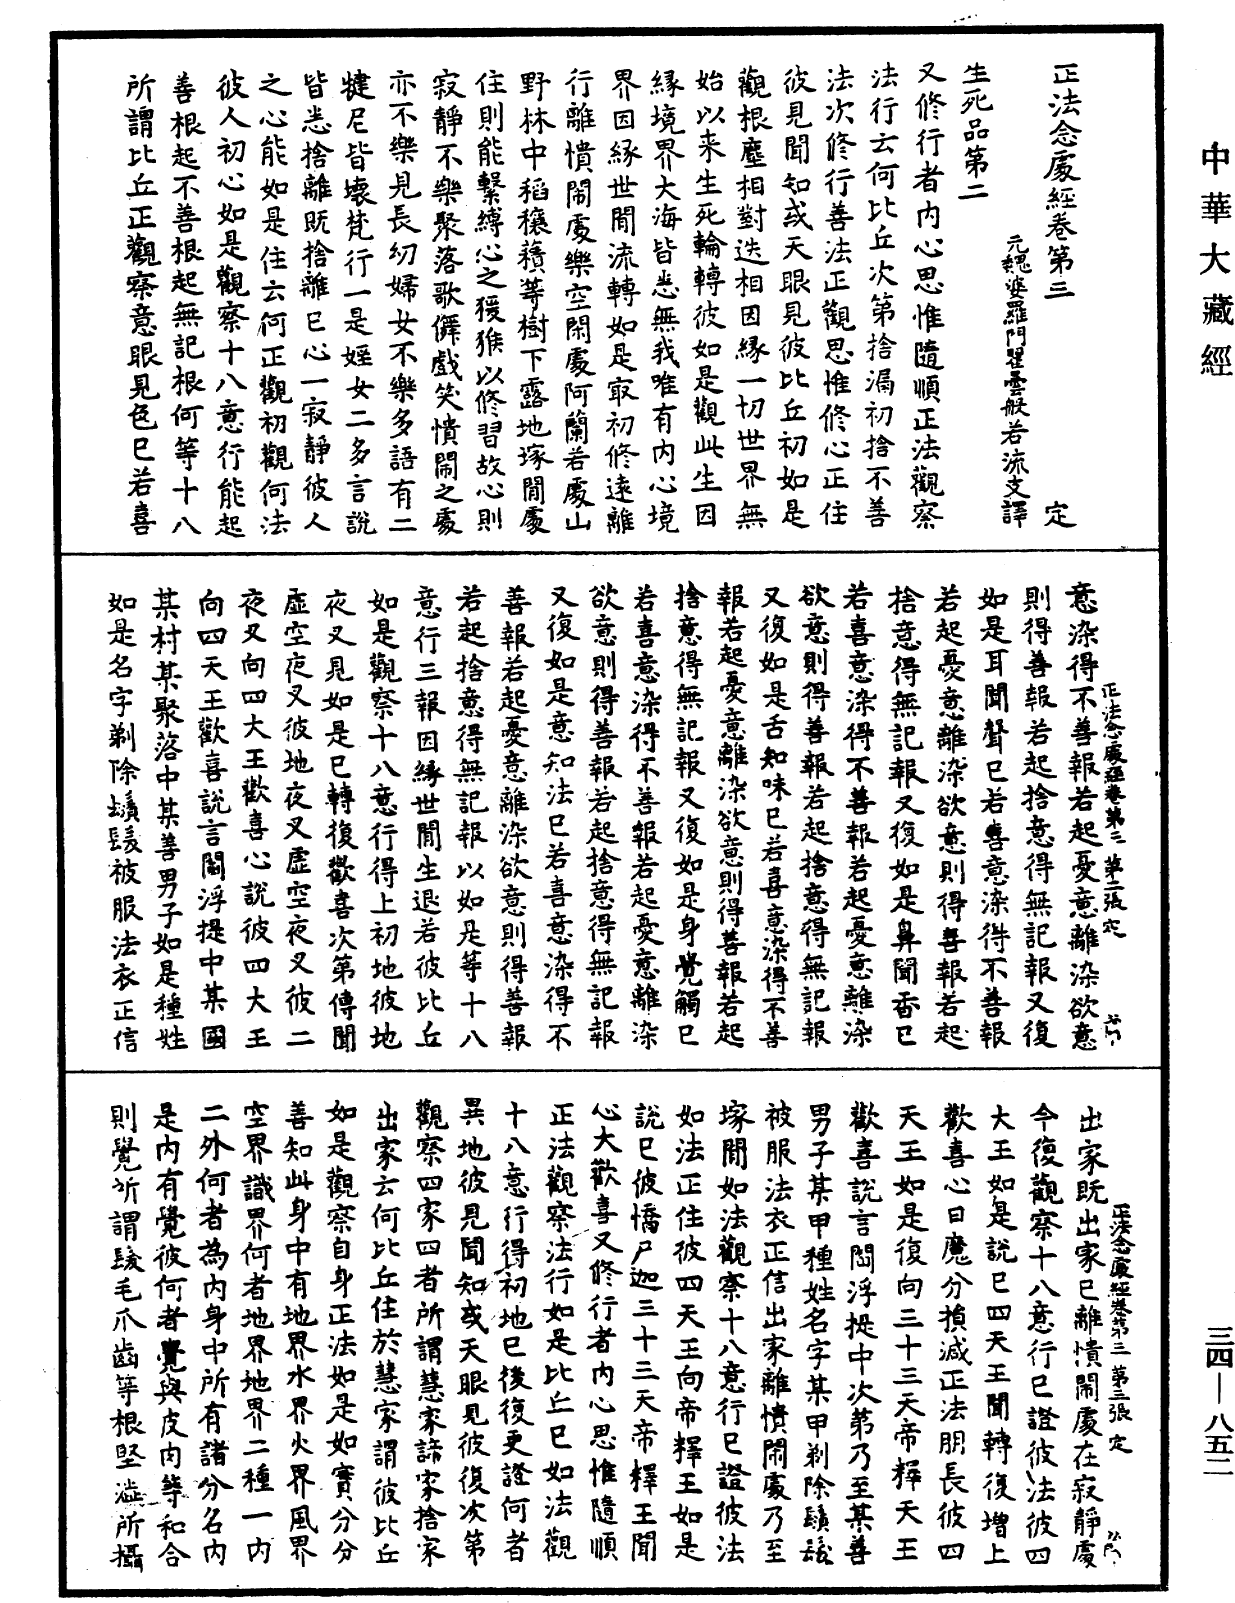 中華大藏經
正法念處經卷第三 定
元魏婆羅門瞿曇般若流支譯
生死品第二
又修行者内心思惟隨順正法觀察
法行云何比丘次第捨漏初捨不善
法次修行善法正觀思惟修心正住
彼見聞知或天眼見彼比丘初如是
觀根塵相對迭相因緣一切世界無
始以来生死輪轉彼如是觀此生因
緣境界大海皆悉無我唯有内心境
界因緣世間流轉如是㝡初修遠離
行離憒閙處樂空閑處阿蘭若處山
野林中稻穰𧂐等樹下露地塚間處
住則能繫縛心之猨猴以修習故心則
寂靜不樂聚落歌儛戲笑憒閙之處
亦不樂見長幼婦女不樂多語有二
揵尼皆壞梵行一是婬女二多言說
皆悉捨離既捨離已心一寂靜彼人
之心能如是住云何正觀初觀何法
彼人初心如是觀察十八意行能起
善根起不善根起無記根何等十八
所謂比丘正觀察意眼見色已若喜
正法念處經卷第三 第二張 定
意染得不善報若起憂意離染欲意
則得善報若起捨意得無記報又復
如是耳聞聲已若喜意染得不善報
若起憂意離染欲意則得善報若起
捨意得無記報又復如是鼻聞香已
若喜意染得不善報若起憂意離染
欲意則得善報若起捨意得無記報
又復如是舌知味已若喜意染得不善
報若起憂意離染欲意則得善報若起
捨意得無記報又復如是身覺觸已
若喜意染得不善報若起憂意離染
欲意則得善報若起捨意得無記報
又復如是意知法已若喜意染得不
善報若起憂意離染欲意則得善報
若起捨意得無記報以如是等十八
意行三報因緣世間生退若彼比丘
如是觀察十八意行得上初地彼地
夜叉見如是已轉復歡喜次第傳聞
虛空夜叉彼地夜叉虛空夜叉彼二
夜叉向四大王歡喜心說彼四大王
向四天王歡喜說言閻浮提中某國
某村某聚落中某善男子如是種姓
如是名字剃除鬚髮被服法衣正信
正法念處經卷第三 第三張 定
出家既出家已離憒閙處在寂靜處
今復觀察十八意行已證彼法彼四
大王如是說已四天王聞轉復增上
歡喜心曰魔分損減正法朋長彼四
天王如是復向三十三天帝釋天王
歡喜說言閻浮提中次第乃至某善
男子某甲種姓名字某甲剃除鬚髮
被服法衣正信出家離憒閙處乃至
塚間如法觀察十八意行已證彼法
如法正住彼四天王向帝釋王如是
說已彼憍尸迦三十三天帝釋王聞
心大歡喜又修行者内心思惟隨順
正法觀察法行如是比丘已如法觀
十八意行得初地已後復更證何者
異地彼見聞知或天眼見彼復次第
觀察四家四者所謂慧家諦家捨家
出家云何比丘住於慧家謂彼比丘
如是觀察自身正法如是如實分分
善知此身中有地界水界火界風界
空界識界何者地界地界二種一内
二外何者為内身中所有諸分名内
是内有覺彼何者覺與皮肉等和合
則覺所謂髮毛爪齒等根堅澁所攝
三四—八五二